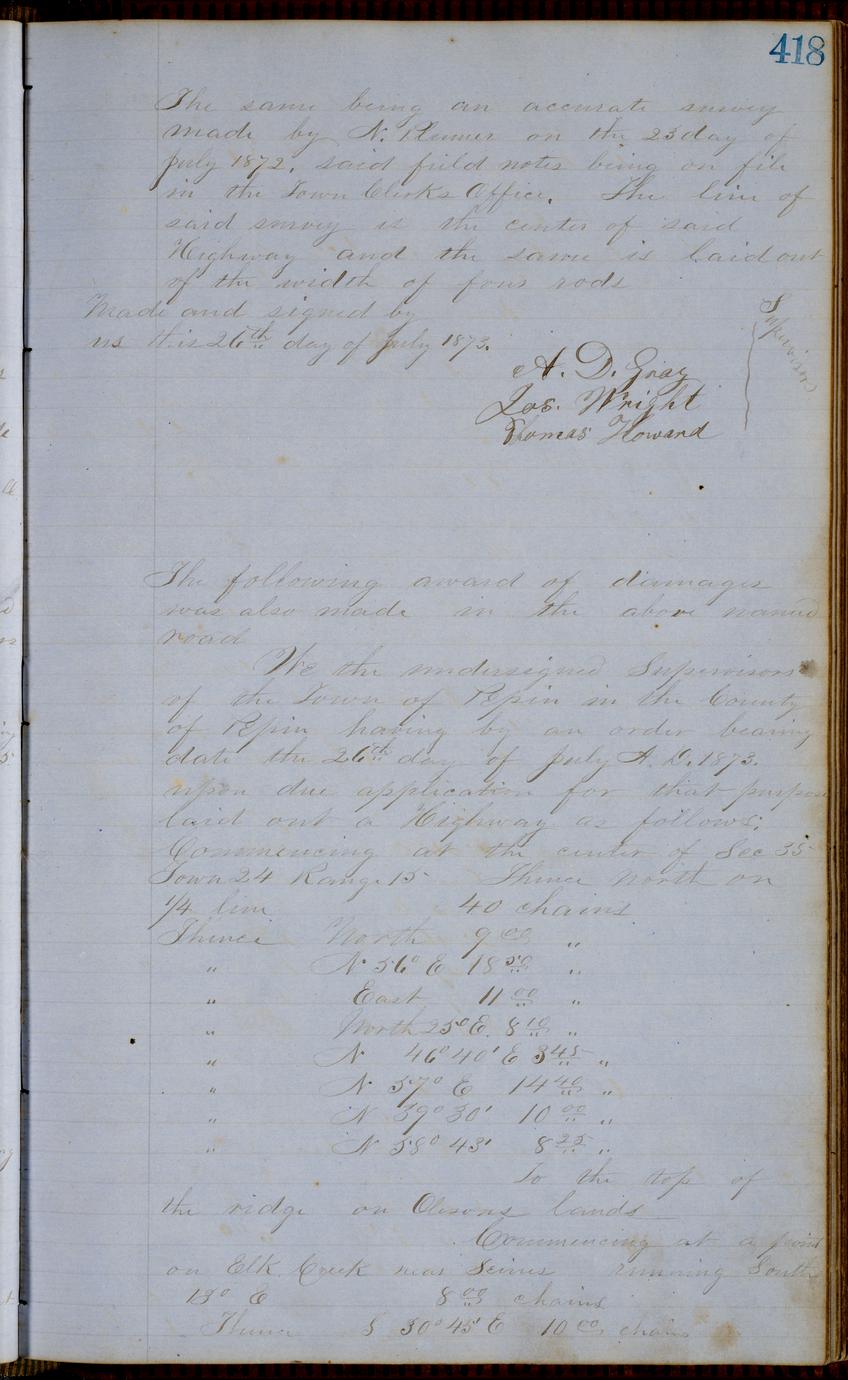 418
The same being an accurate survey
made by N. Plumer on the 23 day of
July 1872, said field notes being on file
in the Town Clerks Office. The line of
said survey is the center of said
Highway and the same is laid out
of the width of four rods
Made and signed by
us this 26th day of July 1873.
A. D. Gray
Jos. Wright
Thomas Howard
Supervisors
The following award of damages
was also made in the above named
road
We the undersigned Supervisors
of the Town of Pepin in the County
of Pepin having by an order bearing
date the 26th day of July A. D. 1873.
upon due application for that purpose
laid out a Highway as follows.
Commencing at the center of Sec 35
Town 24 Range 15 Thence North on
1/4 line 40 chains
Thence North 9 00 "
" N 56° E 18 50 "
" East 11 00 "
" North 25° E. 8 10 "
" N 46° 40' E 3 45 "
" N 57° E 14 40 "
" N 39° 30' 10 00 "
" N 58° 43' 8 25 "
To the top of
the ridge on Olesons lands
Commencing at a point
on Elk Creek near running South
13° E 8 00 chains
Thence S 30° 45' E 10 00 chains